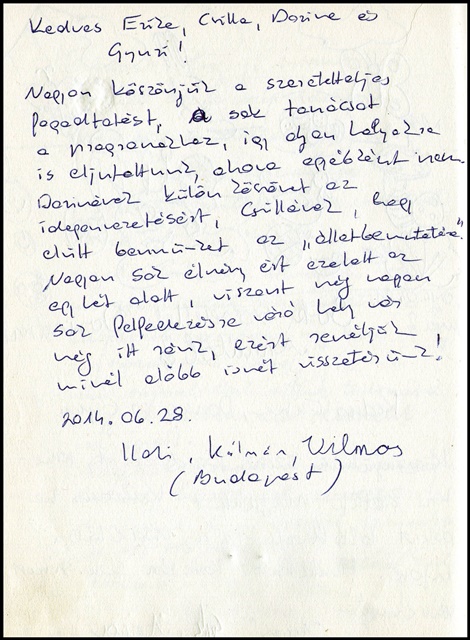 Kedves Emőke, Csilla, Dorine és
Gyuri!
Nagyon köszönjük a szeretetteljes
fogadtatást, a sok tanácsot
a programokhoz, így olyan helyekre
is eljutottunk, ahova egyébként nem.
Dorinának külön köszönet az
idegenvezetésért, Csillának, hogy
elvitt bennünket az "állatbemutatóra".
Nagyon sok élmény ért ezalatt az
egy hét alatt, viszont még nagyon
sok felfedezésre váró hely vár
még itt ránk, ezért reméljük
minél előbb ismét visszatérünk!
2014.06.28.
Kálmán, Vilmos
(Budapest)